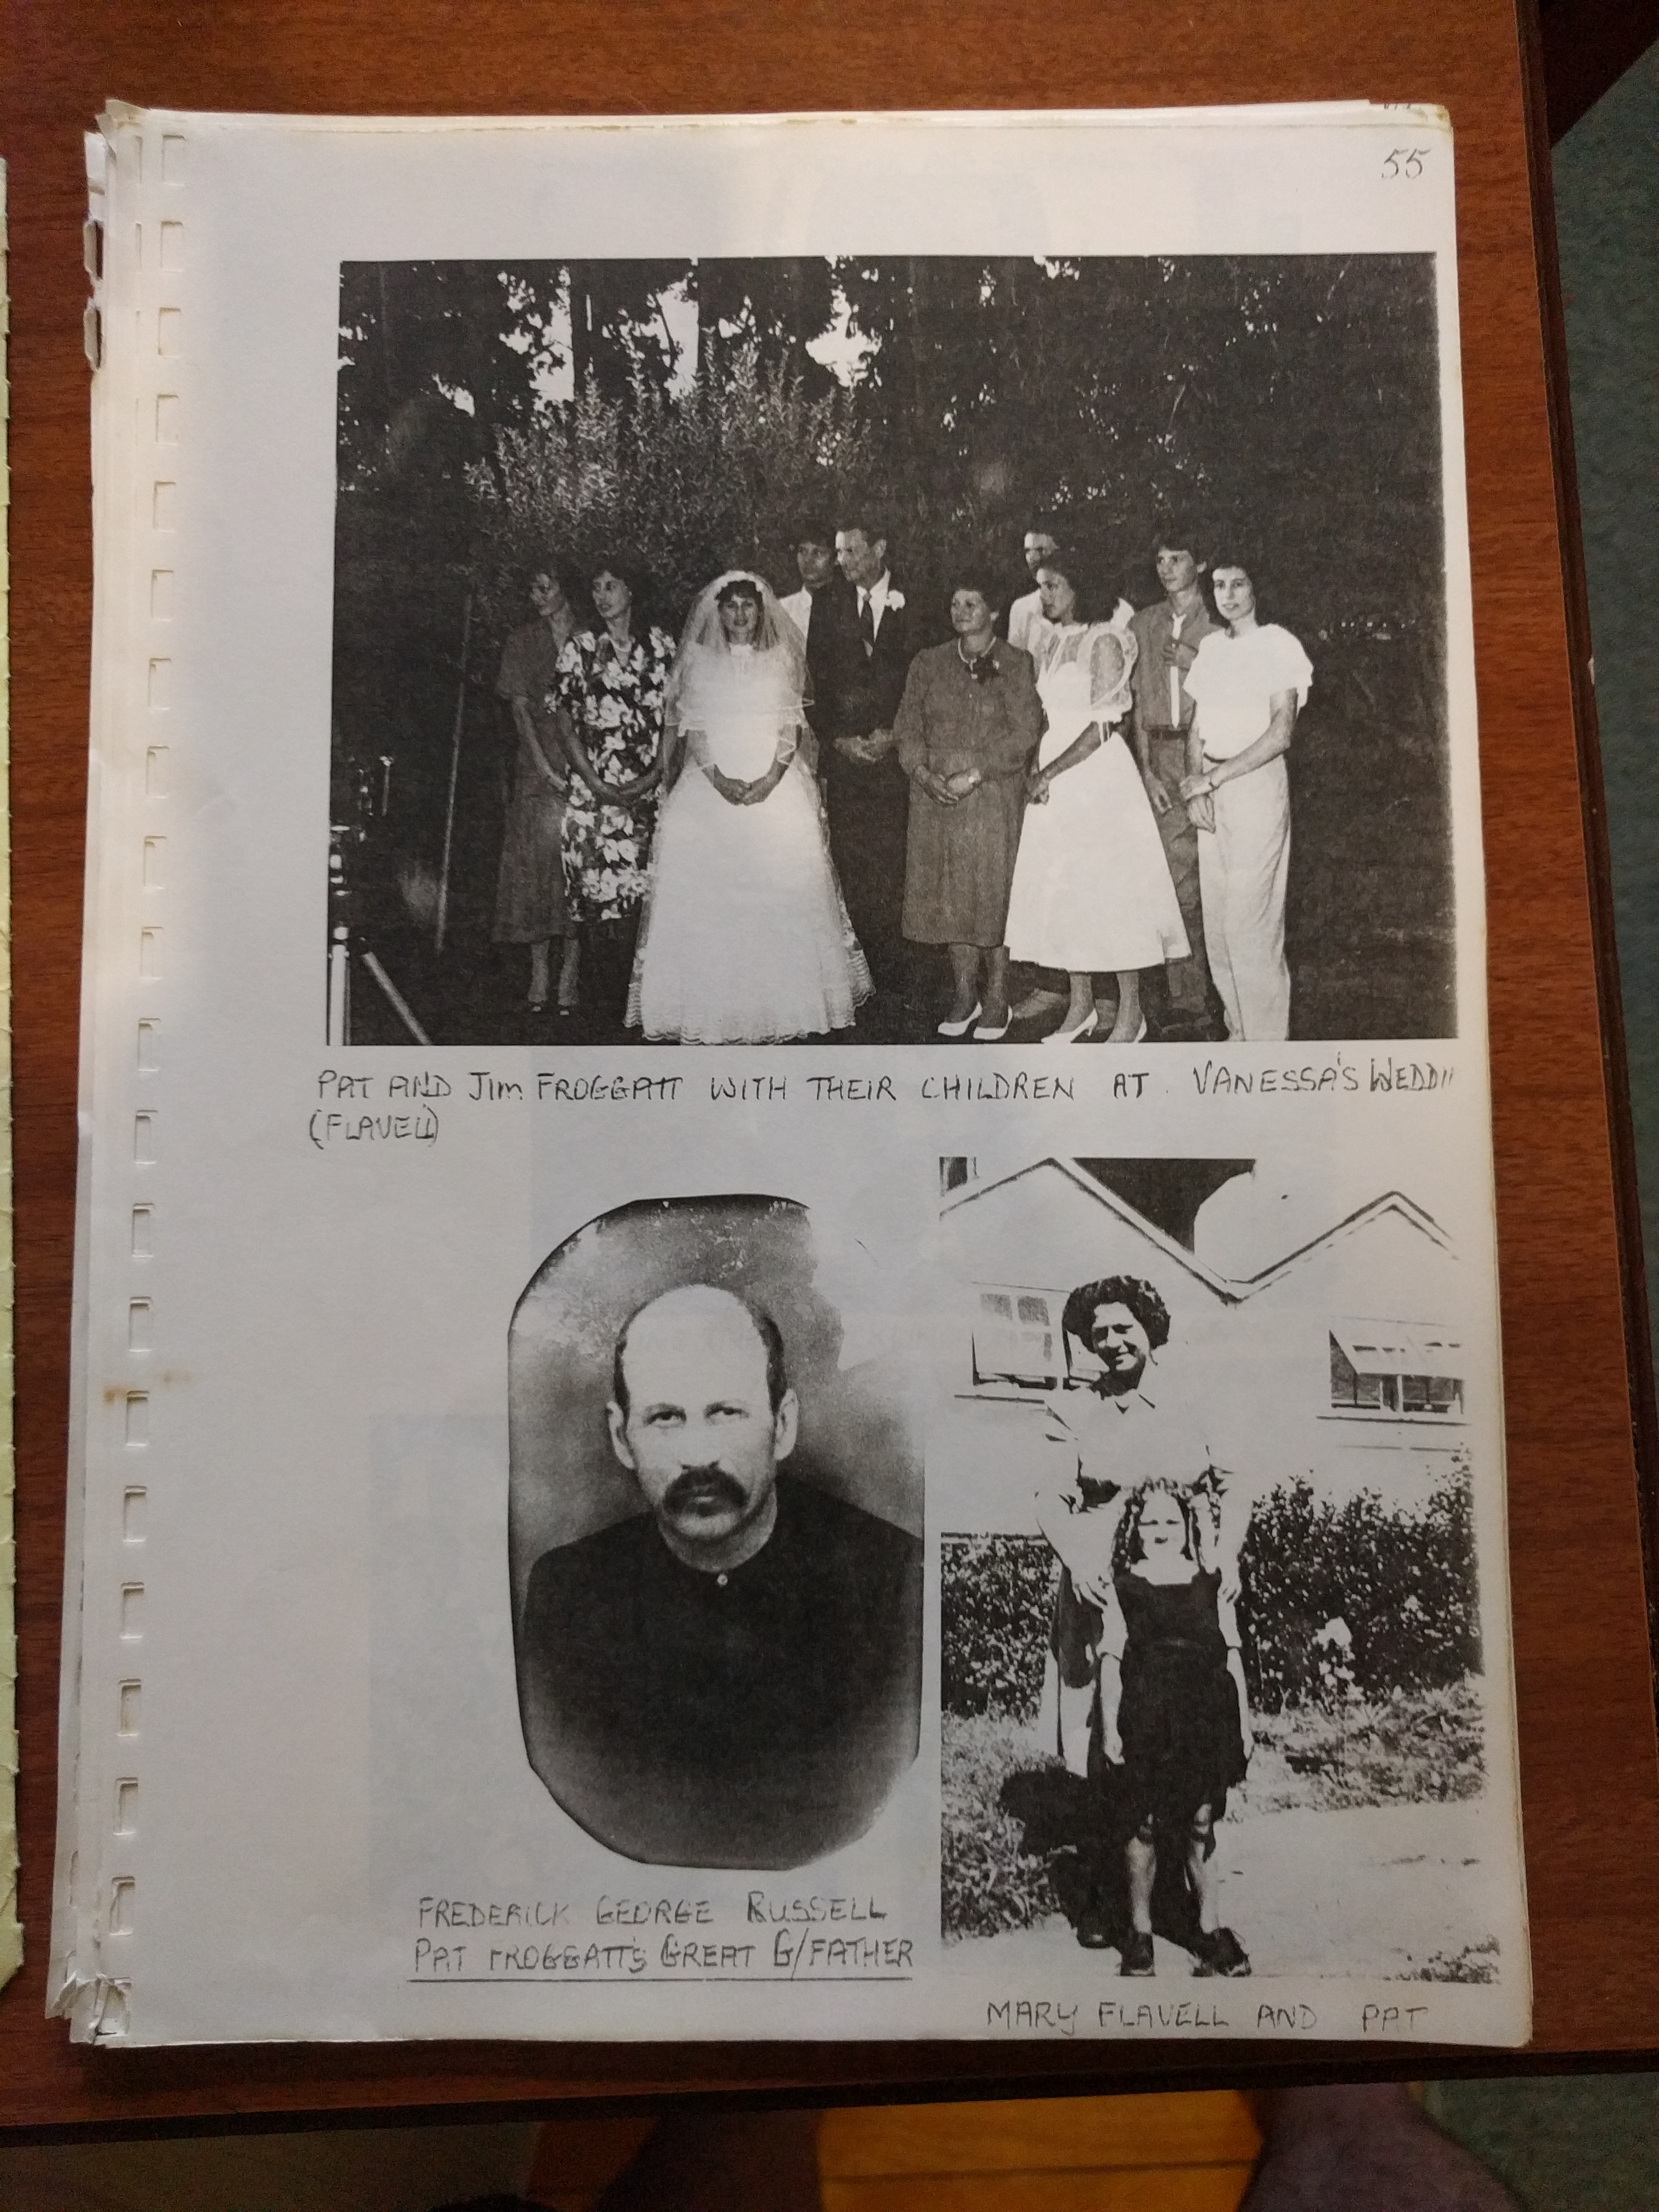 55
PAT AND JIM FROGGATT WITH THEIR CHILDREN AT. VANESSA'S
(FLAVELL)
FREDERICK GEORGE RUSSELL
PAT FROGGATT'S GREAT G/FATHER
MARY FLAVELL AND PAT